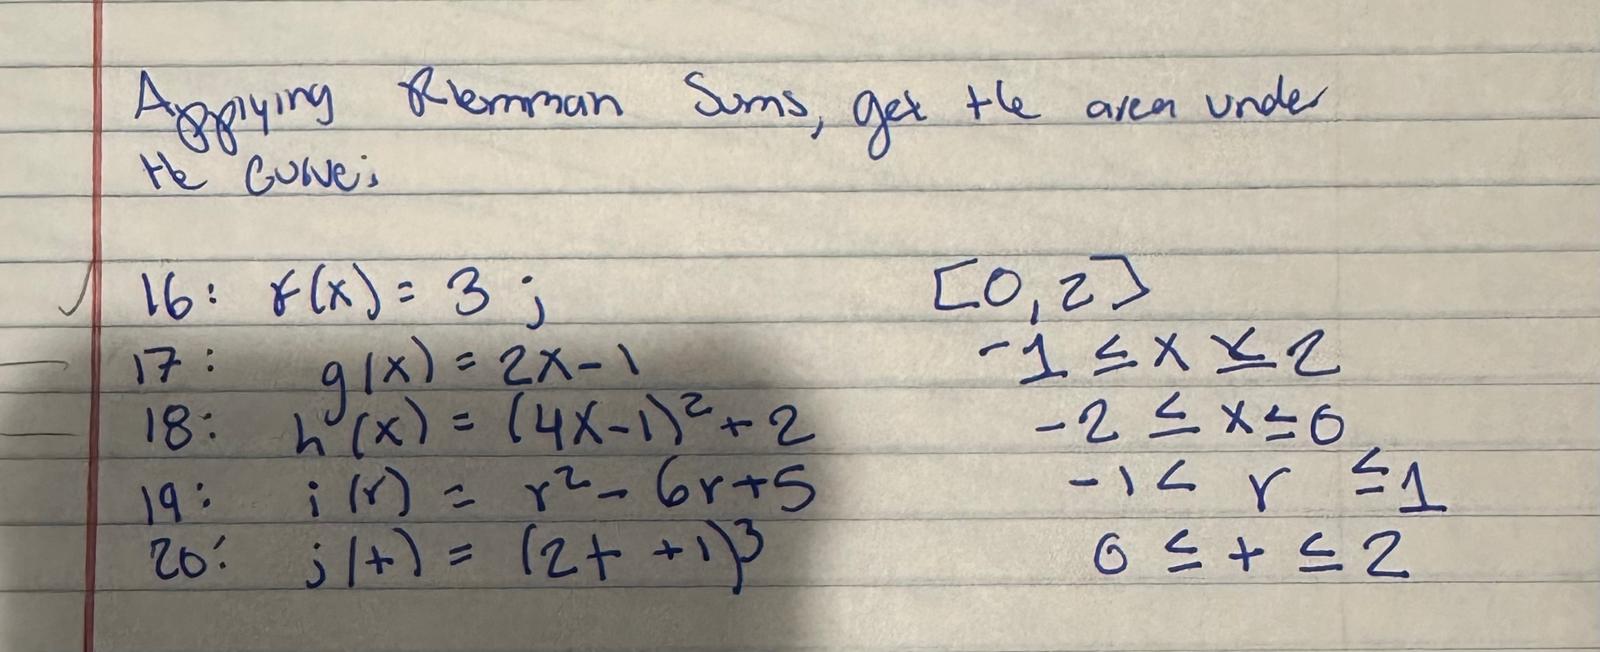 Applying Riemman Sums, get the area under
the curve;
16: f(x) = 3 ; [0,2]
17: g(x) = 2x-1 -1 ≤ x ≤ 2
18: h(x) = (4x-1)² + 2 -2 ≤ x ≤ 0
19: i(r) = r² - 6r+5 -1 < r ≤ 1
20: j(t) = (2t +1)³ 0 ≤ t ≤ 2